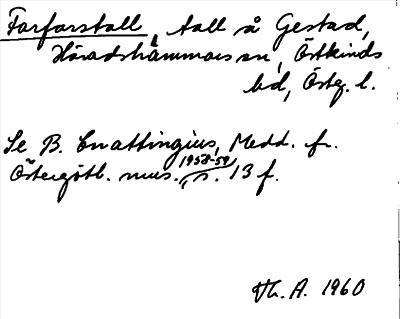 Farfarstall, tall å Gestad,
Häradshammars sn, Östkinds
hd, Östg. l.
Se B. Cnattingius, Medd. fr.
Östergötl. mus. 1958-59, s. 13 f.
Th. A. 1960